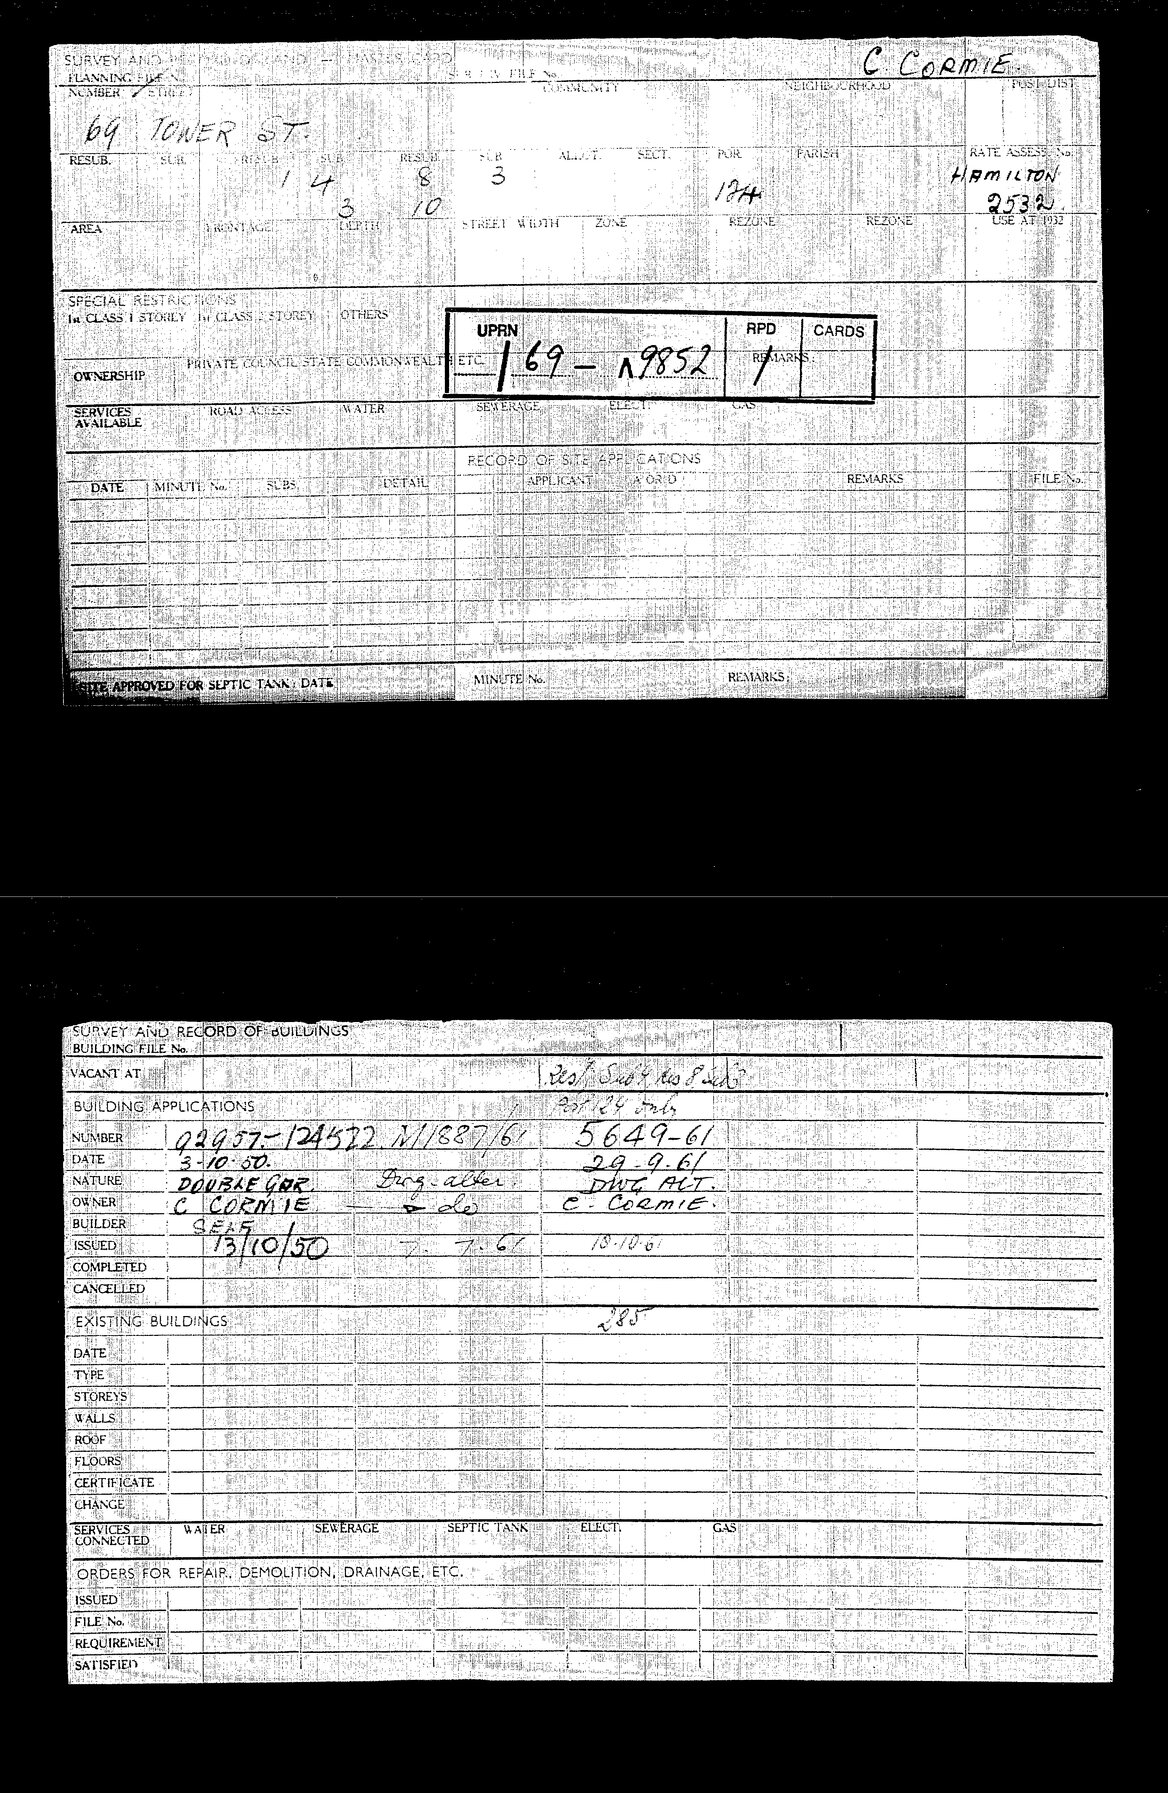 C CORMIE.
SURVEY AND
PLANNING FILE No.
NUMBER STREET COMMUNITY NEIGHBOURHOOD POST DIST.
69 TOWER ST.
RESUB. SUB. RESUB. SUB. RESUB. SUB. ALLOT. SECT. POR. PARISH RATE ASSESS. No.
1 4 8 3 124 HAMILTON
3 10 2532
AREA FRONTAGE DEPTH STREET WIDTH ZONE REZONE REZONE USE AT 1932
SPECIAL RESTRICTIONS
1st CLASS 1 STOREY 1st CLASS 2 STOREY OTHERS
UPRN RPD CARDS
1 69 - 9852 1
OWNERSHIP PRIVATE COUNCIL STATE COMMONWEALTH ETC. REMARKS:
SERVICES AVAILABLE ROAD ACCESS WATER SEWERAGE ELECT. GAS
RECORD OF SITE APPLICATIONS
DATE MINUTE No. SUBS. DETAIL APPLICANT A OR D REMARKS FILE No.
SITE APPROVED FOR SEPTIC TANK: DATE MINUTE No. REMARKS:
SURVEY AND RECORD OF BUILDINGS
BUILDING FILE No.
VACANT AT Res1 Sub4 Res 8 Sub3
BUILDING APPLICATIONS Por 124 only
NUMBER 92957-124522 M1887/61 5649-61
DATE 3-10-50. 29-9-61
NATURE DOUBLE GAR. Dwg. alter. DWG ALT.
OWNER C CORMIE do C. CORMIE.
BUILDER SELF
ISSUED 13/10/50 7. 7. 61 10-10-61
COMPLETED
CANCELLED
EXISTING BUILDINGS 285
DATE
TYPE
STOREYS
WALLS
ROOF
FLOORS
CERTIFICATE
CHANGE
SERVICES CONNECTED WATER SEWERAGE SEPTIC TANK ELECT. GAS
ORDERS FOR REPAIR, DEMOLITION, DRAINAGE, ETC.
ISSUED
FILE No.
REQUIREMENT
SATISFIED